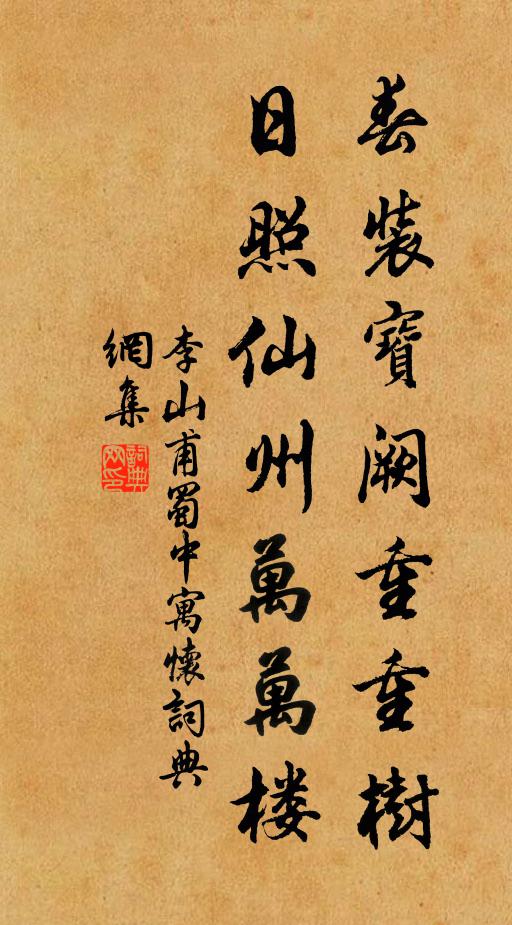 春裝寶闕重重樹
日照仙州萬萬楼
李山甫蜀中寓懷詞典
網集
詞典
网印